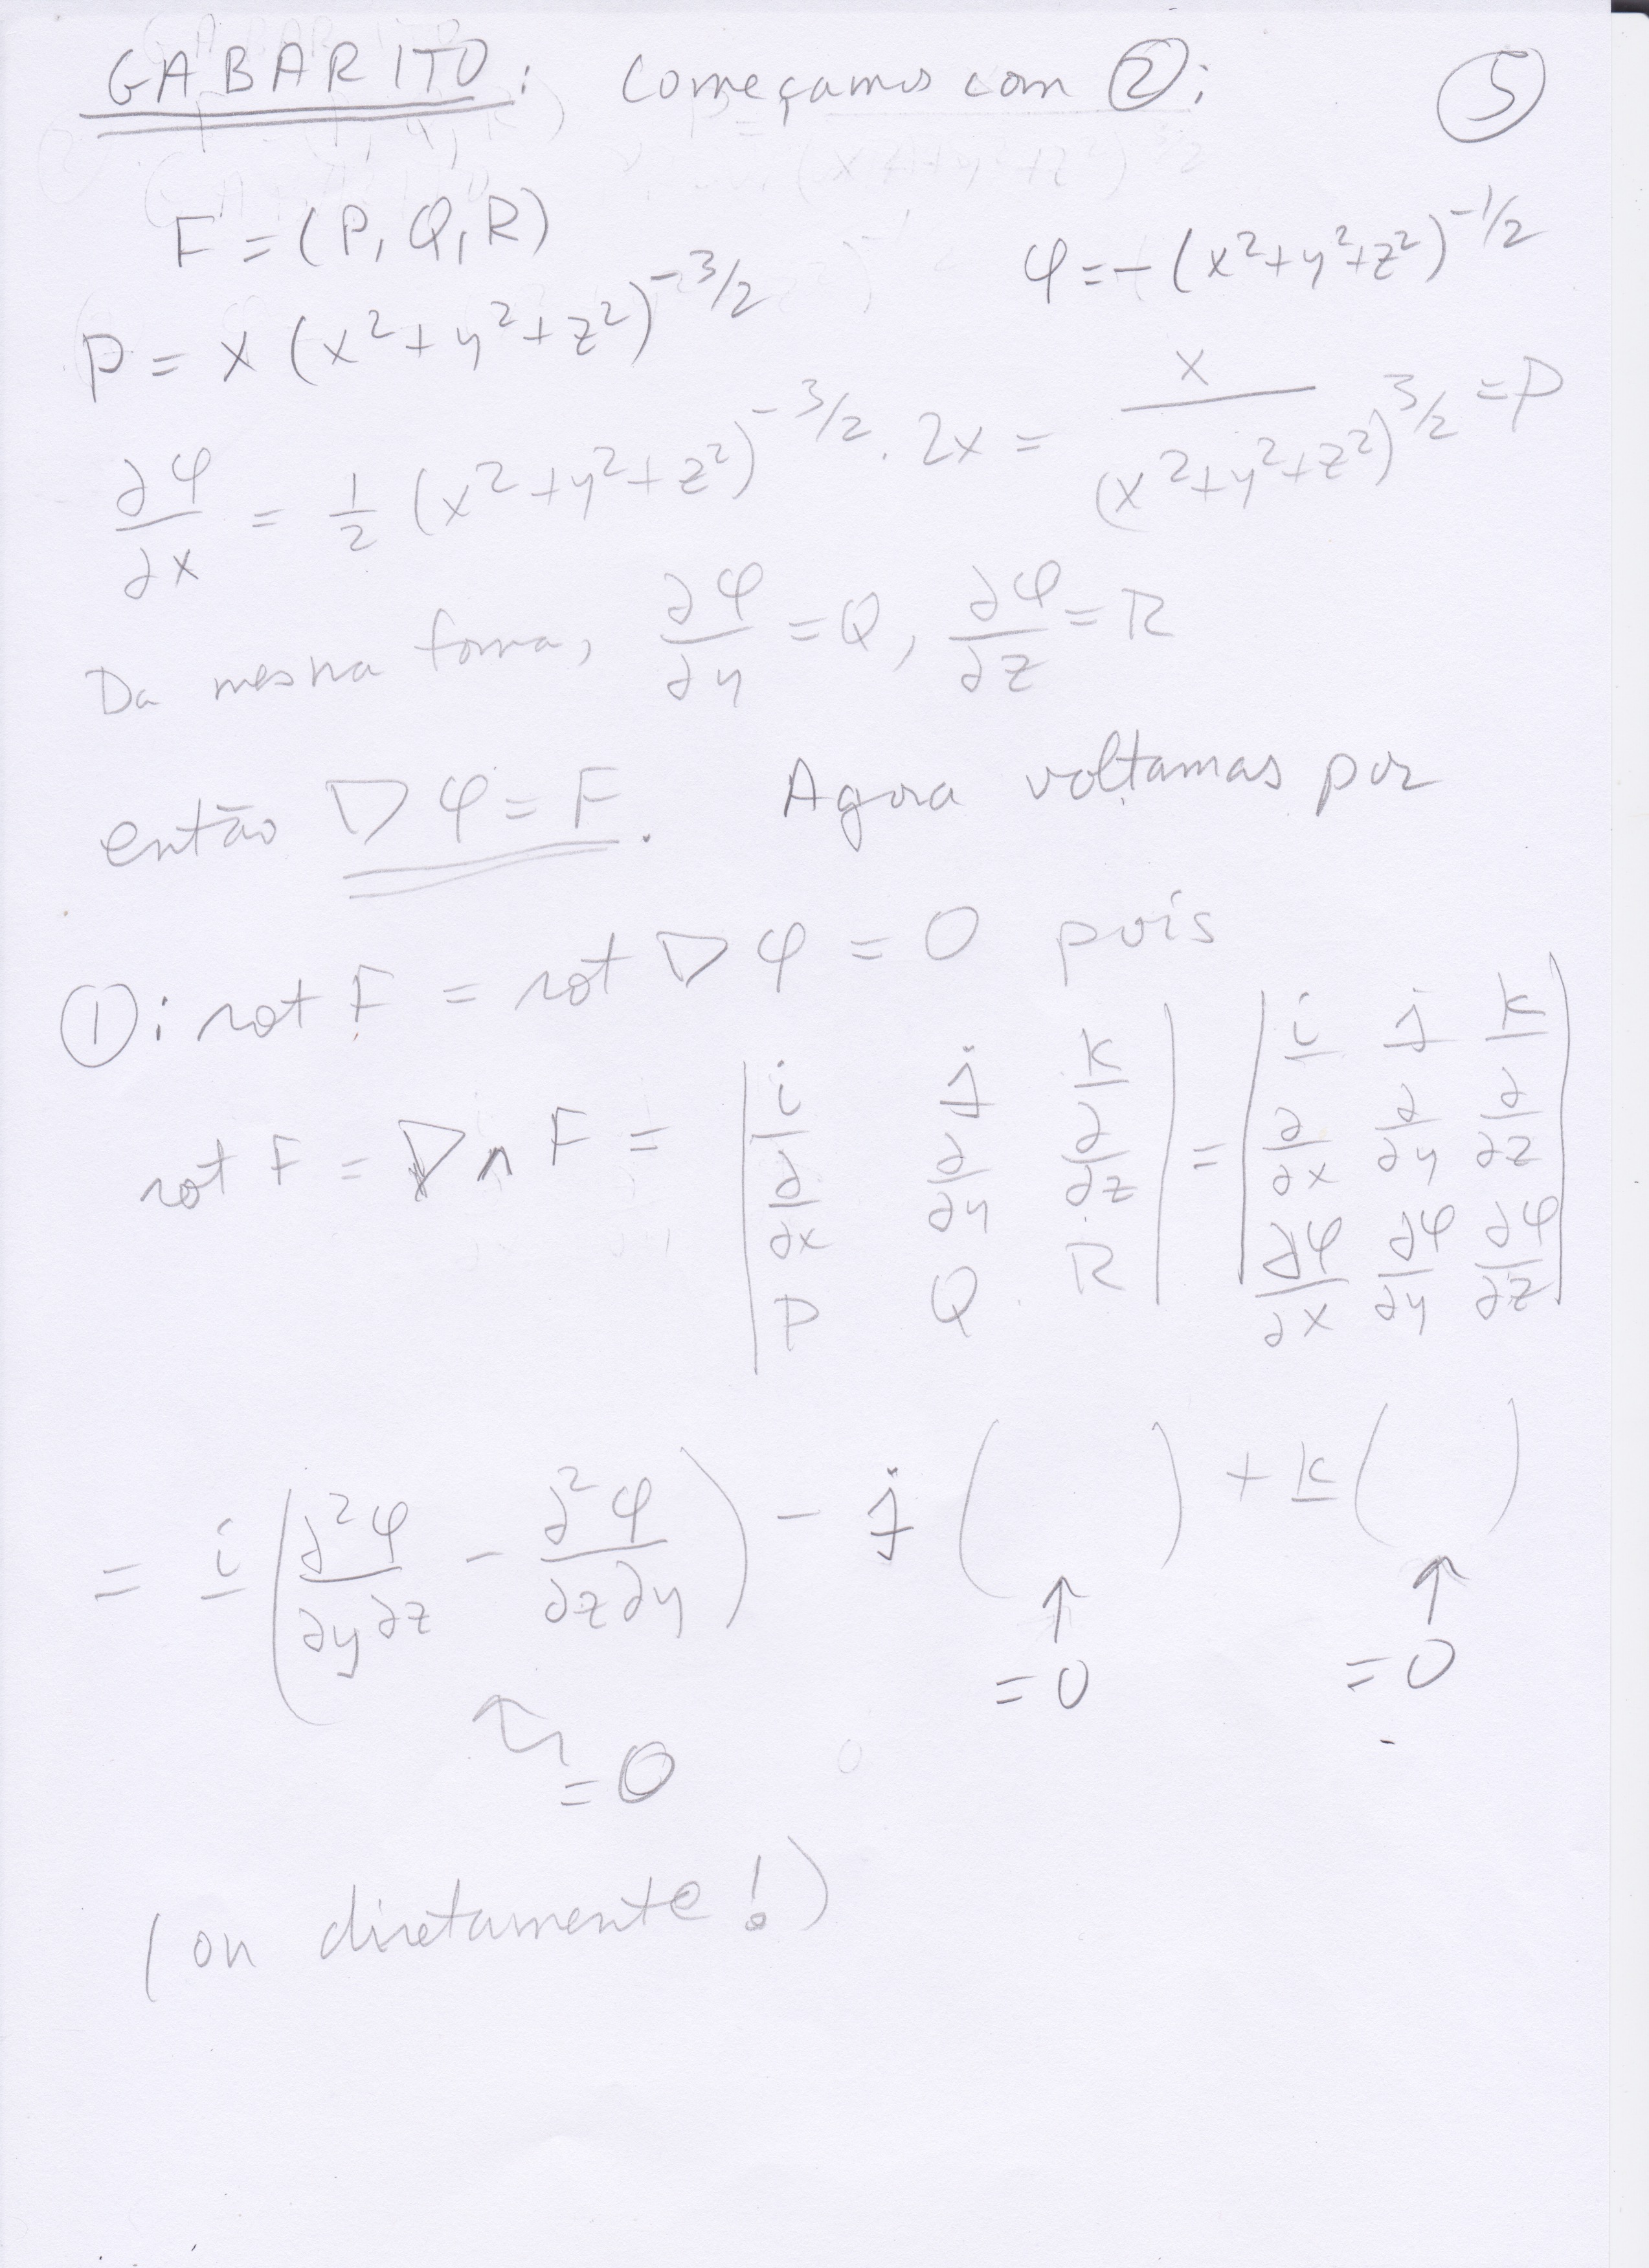 GABARITO: Começamos com ②: ⑤
F = (P, Q, R)
φ = -(x²+y²+z²)^{-1/2}
P = x (x²+y²+z²)^{-3/2}
∂φ/∂x = 1/2 (x²+y²+z²)^{-3/2} · 2x = x/(x²+y²+z²)^{3/2} = P
Da mesma forma, ∂φ/∂y = Q, ∂φ/∂z = R
então ∇φ = F. Agora voltamas por
①: rot F = rot ∇φ = 0 pois
rot F = ∇∧F = | i j k ; ∂/∂x ∂/∂y ∂/∂z ; P Q R | = | i j k ; ∂/∂x ∂/∂y ∂/∂z ; ∂φ/∂x ∂φ/∂y ∂φ/∂z |
= i (∂²φ/∂y∂z - ∂²φ/∂z∂y) - j ( ) + k ( )
↑ = 0 ↑ = 0
↖ = 0
(ou diretamente!)